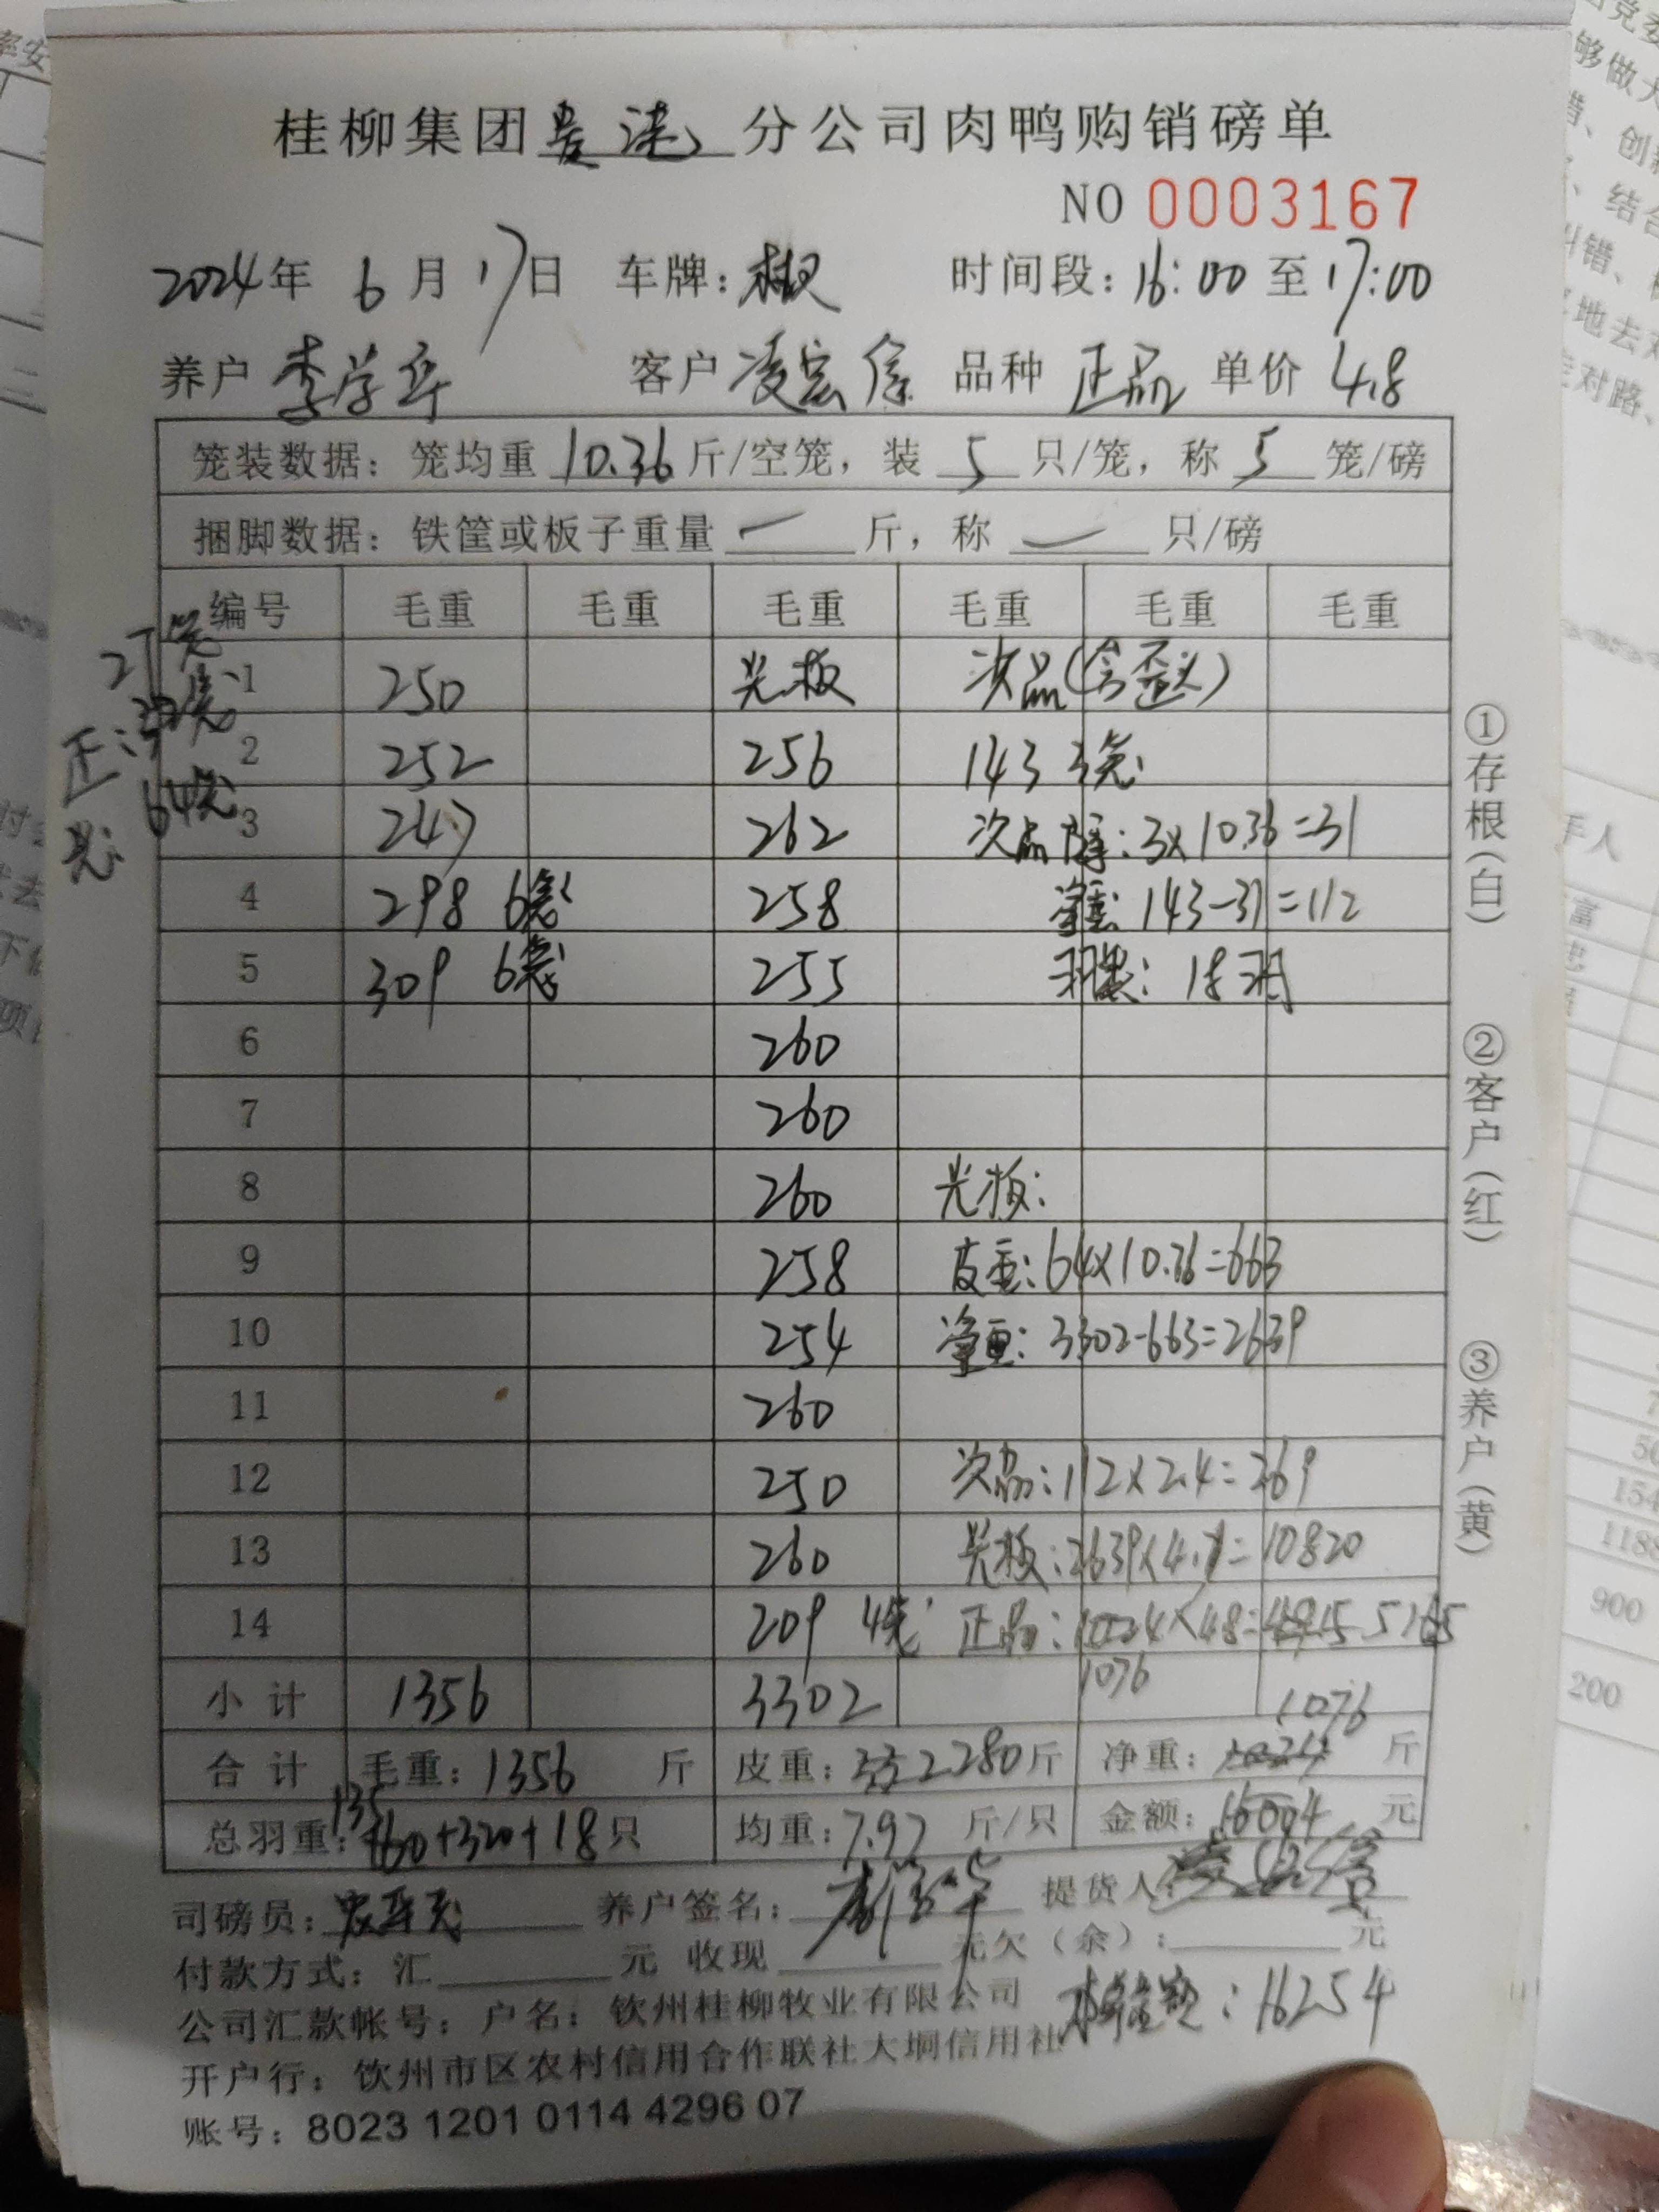 桂柳集团 分公司肉鸭购销磅单
NO 0003167
2024年 6月17日 车牌: 时间段:16:00至17:00
养户 李学华 客户 凌宏信 品种 正品 单价 4.8
笼装数据: 笼均重 10.36 斤/空笼, 装 5 只/笼, 称 5 笼/磅
捆脚数据: 铁筐或板子重量 — 斤, 称 — 只/磅
编号 毛重 毛重 毛重 毛重 毛重 毛重
1 250 光板 次品(含歪头)
2 252 256 143 3笼
3 247 262 次品 :3×10.36=31
4 298 6笼 258 净重: 143-31=112
5 309 6笼 255 羽数: 18羽
6 260
7 260
8 260 光板:
9 258 皮重:64×10.36=663
10 254 净重: 3302-663=2639
11 260
12 250 次品:112×2.4=269
13 260 光板:2639×4.1=10820
14 209 4笼 正品:1024×4.8=4915 5165
1076
小计 1356 3302
1076
合计 毛重:1356 斤 皮重: 332 280斤 净重:1024 斤
总羽重: 135 160+320+18只 均重:7.97 斤/只 金额:16004 元
27笼
正:
64笼
光:
司磅员: 养户签名: 提货人:
付款方式: 汇 元 收现 元欠(余): 元
公司汇款帐号: 户名: 钦州桂柳牧业有限公司
:16254
开户行: 钦州市区农村信用合作联社大垌信用社
账号: 8023 1201 0114 4296 07
①存根(白)
②客户(红)
③养户(黄)
手人
7
50
154
1188
900
200